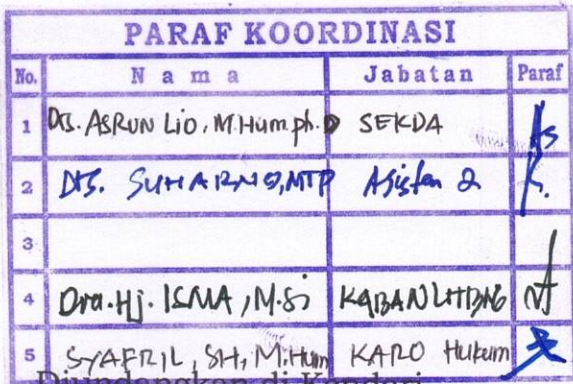 PARAF KOORDINASI
No. Nama Jabatan Paraf
1 Drs. ASRUN LIO, M.Hum, ph.D SEKDA
2 Drs. SUHARNO, MTP Asisten 2
3
4 Dra. Hj. ISMA, M.Si KABAN LITBANG
5 SYAFRIL, SH, M.Hum KARO Hukum
Diundangkan di Kendari